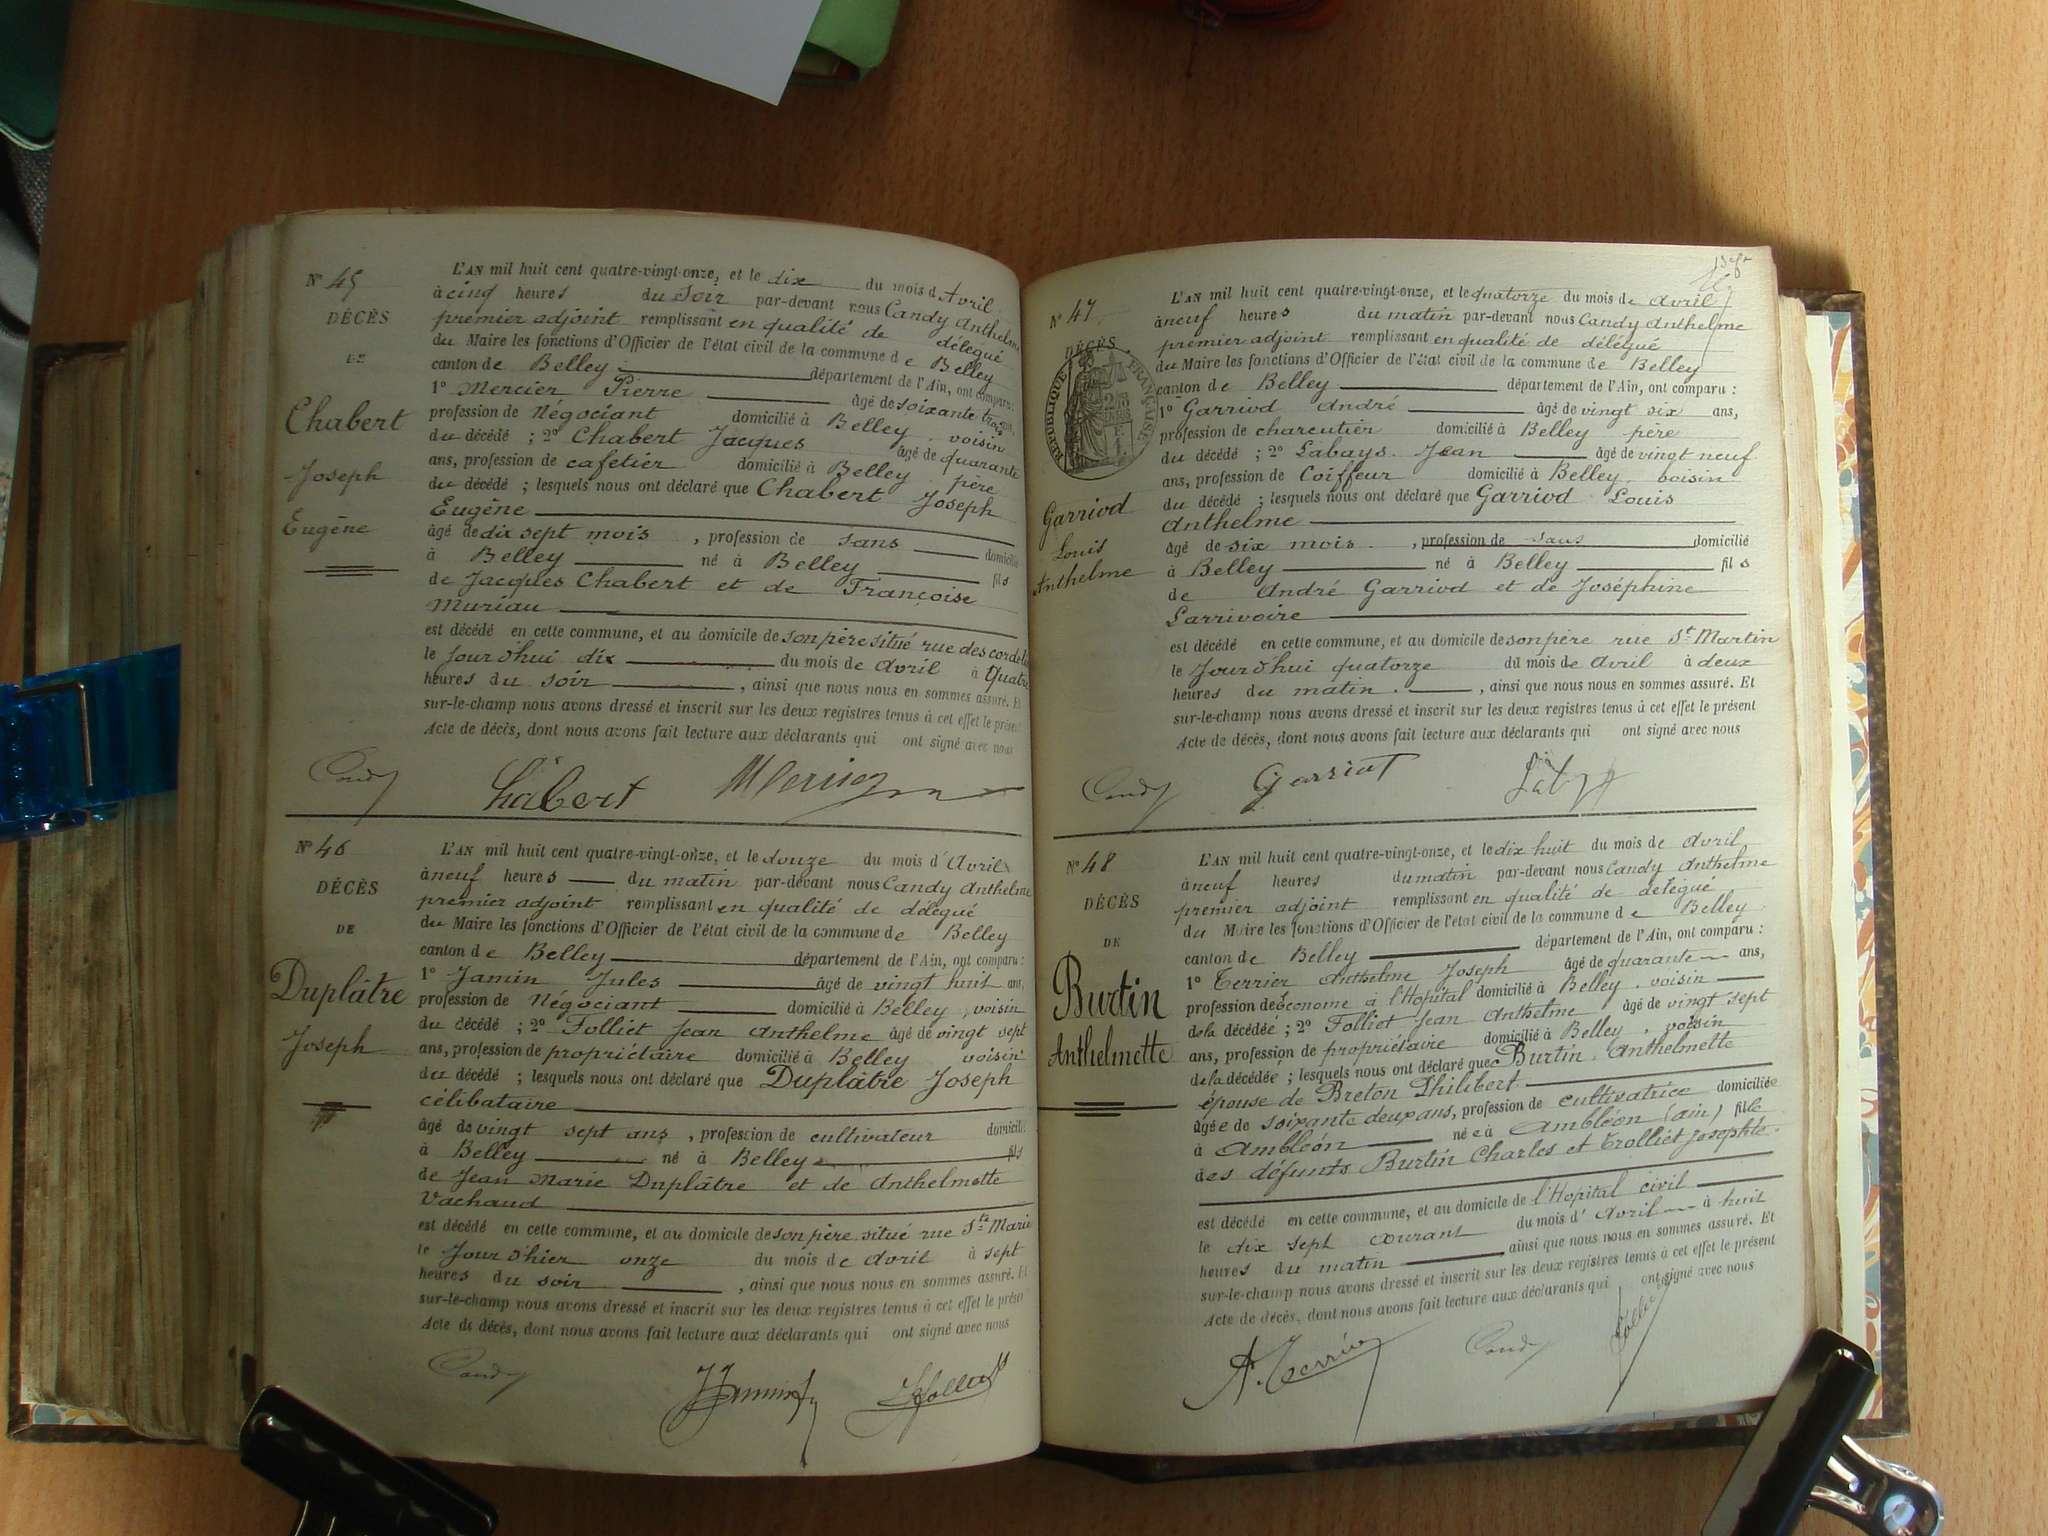 Nº 45
DÉCÈS
DE
Chabert
Joseph
Eugène
L'AN mil huit cent quatre-vingt-onze, et le dix du mois d'Avril
à cinq heures du soir par-devant nous Candy Anthelme
premier adjoint remplissant en qualité de délégué
du Maire les fonctions d'Officier de l'état civil de la commune de Belley
canton de Belley département de l'Ain, ont comparu :
1º Mercier Pierre âgé de soixante trois ans,
profession de Négociant domicilié à Belley, voisin
du décédé ; 2º Chabert Jacques âgé de quarante
ans, profession de cafetier domicilié à Belley, père
du décédé ; lesquels nous ont déclaré que Chabert Joseph
Eugène
âgé de dix sept mois , profession de sans domicilié
à Belley né à Belley fils
de Jacques Chabert et de Françoise
Muriau
est décédé en cette commune, et au domicile de son père situé rue des cordeliers
le jour d'hui dix du mois de Avril à quatre
heures du soir , ainsi que nous nous en sommes assuré. Et
sur-le-champ nous avons dressé et inscrit sur les deux registres tenus à cet effet le présent
Acte de décès, dont nous avons fait lecture aux déclarants qui ont signé avec nous
Candy Chabert Mercier
Nº 46
DÉCÈS
DE
Duplâtre
Joseph
L'AN mil huit cent quatre-vingt-onze, et le douze du mois d'Avril
à neuf heures du matin par-devant nous Candy Anthelme
premier adjoint remplissant en qualité de délégué
du Maire les fonctions d'Officier de l'état civil de la commune de Belley
canton de Belley département de l'Ain, ont comparu :
1º Jamin Jules âgé de vingt huit ans,
profession de Négociant domicilié à Belley, voisin
du décédé ; 2º Folliet Jean Anthelme âgé de vingt sept
ans, profession de propriétaire domicilié à Belley voisin
du décédé ; lesquels nous ont déclaré que Duplâtre Joseph
célibataire
âgé de vingt sept ans , profession de cultivateur domicilié
à Belley né à Belley fils
de Jean Marie Duplâtre et de Anthelmette
Vachaud
est décédé en cette commune, et au domicile de son père situé rue Ste Marie
le jour d'hier onze du mois de Avril à sept
heures du soir , ainsi que nous nous en sommes assuré. Et
sur-le-champ nous avons dressé et inscrit sur les deux registres tenus à cet effet le présent
Acte de décès, dont nous avons fait lecture aux déclarants qui ont signé avec nous
Candy JJamin Folliet
Nº 47
DÉCÈS
RÉPUBLIQUE FRANÇAISE
Garriod
Louis
Anthelme
L'AN mil huit cent quatre-vingt-onze, et le quatorze du mois de Avril
à neuf heures du matin par-devant nous Candy Anthelme
premier adjoint remplissant en qualité de délégué
du Maire les fonctions d'Officier de l'état civil de la commune de Belley
canton de Belley département de l'Ain, ont comparu :
1º Garriod André âgé de vingt six ans,
profession de charcutier domicilié à Belley père
du décédé ; 2º Labays Jean âgé de vingt neuf
ans, profession de Coiffeur domicilié à Belley, voisin
du décédé ; lesquels nous ont déclaré que Garriod Louis
Anthelme
âgé de six mois , profession de sans domicilié
à Belley né à Belley fils
de André Garriod et de Joséphine
Larrivoire
est décédé en cette commune, et au domicile de son père rue St Martin
le jour d'hui quatorze du mois de Avril à deux
heures du matin , ainsi que nous nous en sommes assuré. Et
sur-le-champ nous avons dressé et inscrit sur les deux registres tenus à cet effet le présent
Acte de décès, dont nous avons fait lecture aux déclarants qui ont signé avec nous
Candy Garriot
Nº 48
DÉCÈS
DE
Burtin
Anthelmette
L'AN mil huit cent quatre-vingt-onze, et le dix huit du mois de Avril
à neuf heures du matin par-devant nous Candy Anthelme
premier adjoint remplissant en qualité de délégué
du Maire les fonctions d'Officier de l'état civil de la commune de Belley
canton de Belley département de l'Ain, ont comparu :
1º Terrier Anthelme Joseph âgé de quarante ans,
profession de économe à l'Hopital domicilié à Belley, voisin
de la décédée ; 2º Folliet Jean Anthelme âgé de vingt sept
ans, profession de propriétaire domicilié à Belley, voisin
de la décédée ; lesquels nous ont déclaré que Burtin Anthelmette
épouse de Breton Philibert
âgée de soixante deux ans, profession de cultivatrice domiciliée
à Ambléon née à Ambléon (ain) fille
des défunts Burtin Charles et Trolliet Josephte
est décédé en cette commune, et au domicile de l'Hopital civil
le dix sept courant du mois d'Avril à huit
heures du matin ainsi que nous nous en sommes assuré. Et
sur-le-champ nous avons dressé et inscrit sur les deux registres tenus à cet effet le présent
Acte de décès, dont nous avons fait lecture aux déclarants qui ont signé avec nous
A. Terrier Candy Folliet